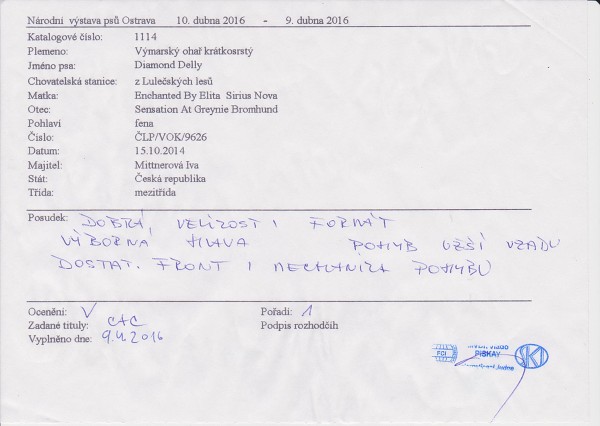 Národní výstava psů Ostrava 10. dubna 2016 - 9. dubna 2016
Katalogové číslo: 1114
Plemeno: Výmarský ohař krátkosrstý
Jméno psa: Diamond Delly
Chovatelská stanice: z Lulečských lesů
Matka: Enchanted By Elita Sirius Nova
Otec: Sensation At Greynie Bromhund
Pohlaví fena
Číslo: ČLP/VOK/9626
Datum: 15.10.2014
Majitel: Mittnerová Iva
Stát: Česká republika
Třída: mezitřída
Posudek: DOBRÁ, VELIKOST I FORMÁT
VÝBORNÁ HLAVA POHYB UŽŠÍ VZADU
DOSTAT. FRONT I MECHANIKA POHYBU
Ocenění: V Pořadí: 1
Zadané tituly: CAC Podpis rozhodčíh
Vyplněno dne: 9.4.2016
FCI PISKAY SKJ